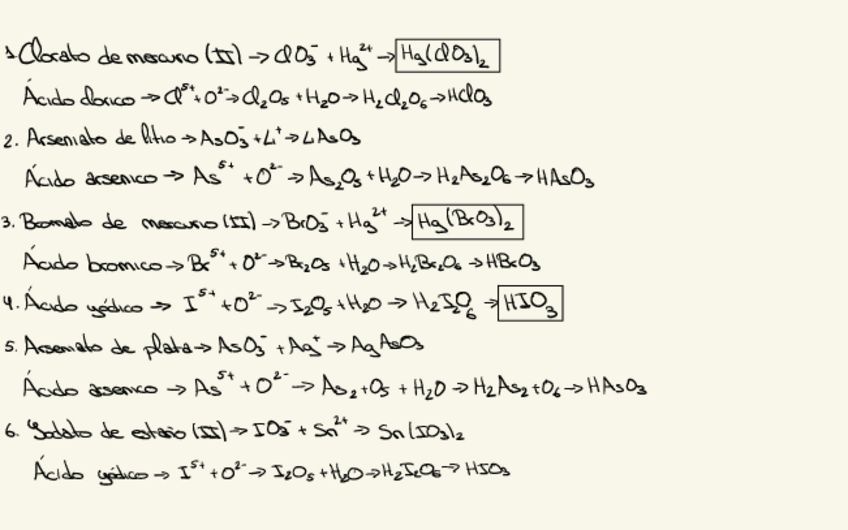 1. Clorato de mercurio (II) → ClO₃⁻ + Hg²⁺ → Hg(ClO₃)₂
Ácido clorico → Cl⁵⁺ + O²⁻ → Cl₂O₅ + H₂O → H₂Cl₂O₆ → HClO₃
2. Arseniato de litio → AsO₃⁻ + Li⁺ → LiAsO₃
Ácido arsenico → As⁵⁺ + O²⁻ → As₂O₅ + H₂O → H₂As₂O₆ → HAsO₃
3. Bromato de mercurio (II) → BrO₃⁻ + Hg²⁺ → Hg(BrO₃)₂
Ácido bromico → Br⁵⁺ + O²⁻ → Br₂O₅ + H₂O → H₂Br₂O₆ → HBrO₃
4. Ácido yódico → I⁵⁺ + O²⁻ → I₂O₅ + H₂O → H₂I₂O₆ → HIO₃
5. Arseniato de plata → AsO₃⁻ + Ag⁺ → AgAsO₃
Ácido arsenico → As⁵⁺ + O²⁻ → As₂+O₅ + H₂O → H₂As₂+O₆ → HAsO₃
6. Yodato de estaño (II) → IO₃⁻ + Sn²⁺ → Sn(IO₃)₂
Ácido yódico → I⁵⁺ + O²⁻ → I₂O₅ + H₂O → H₂I₂O₆ → HIO₃